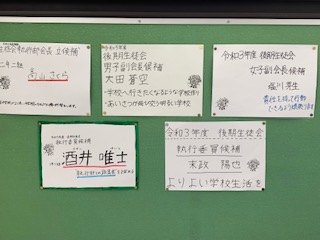 二年二組
高山さくら
後期生徒会
男子副会長候補
太田 蒼空
・学校へ行きたくなるような学校作り
・あいさつが飛び交う明るい学校
令和3年度 後期生徒会
女子副会長候補
塩川 亮生
責任を持って行動
執行委員候補
酒井 唯士
令和3年度 後期生徒会
執行委員候補
末政 陽也
よりよい学校生活を